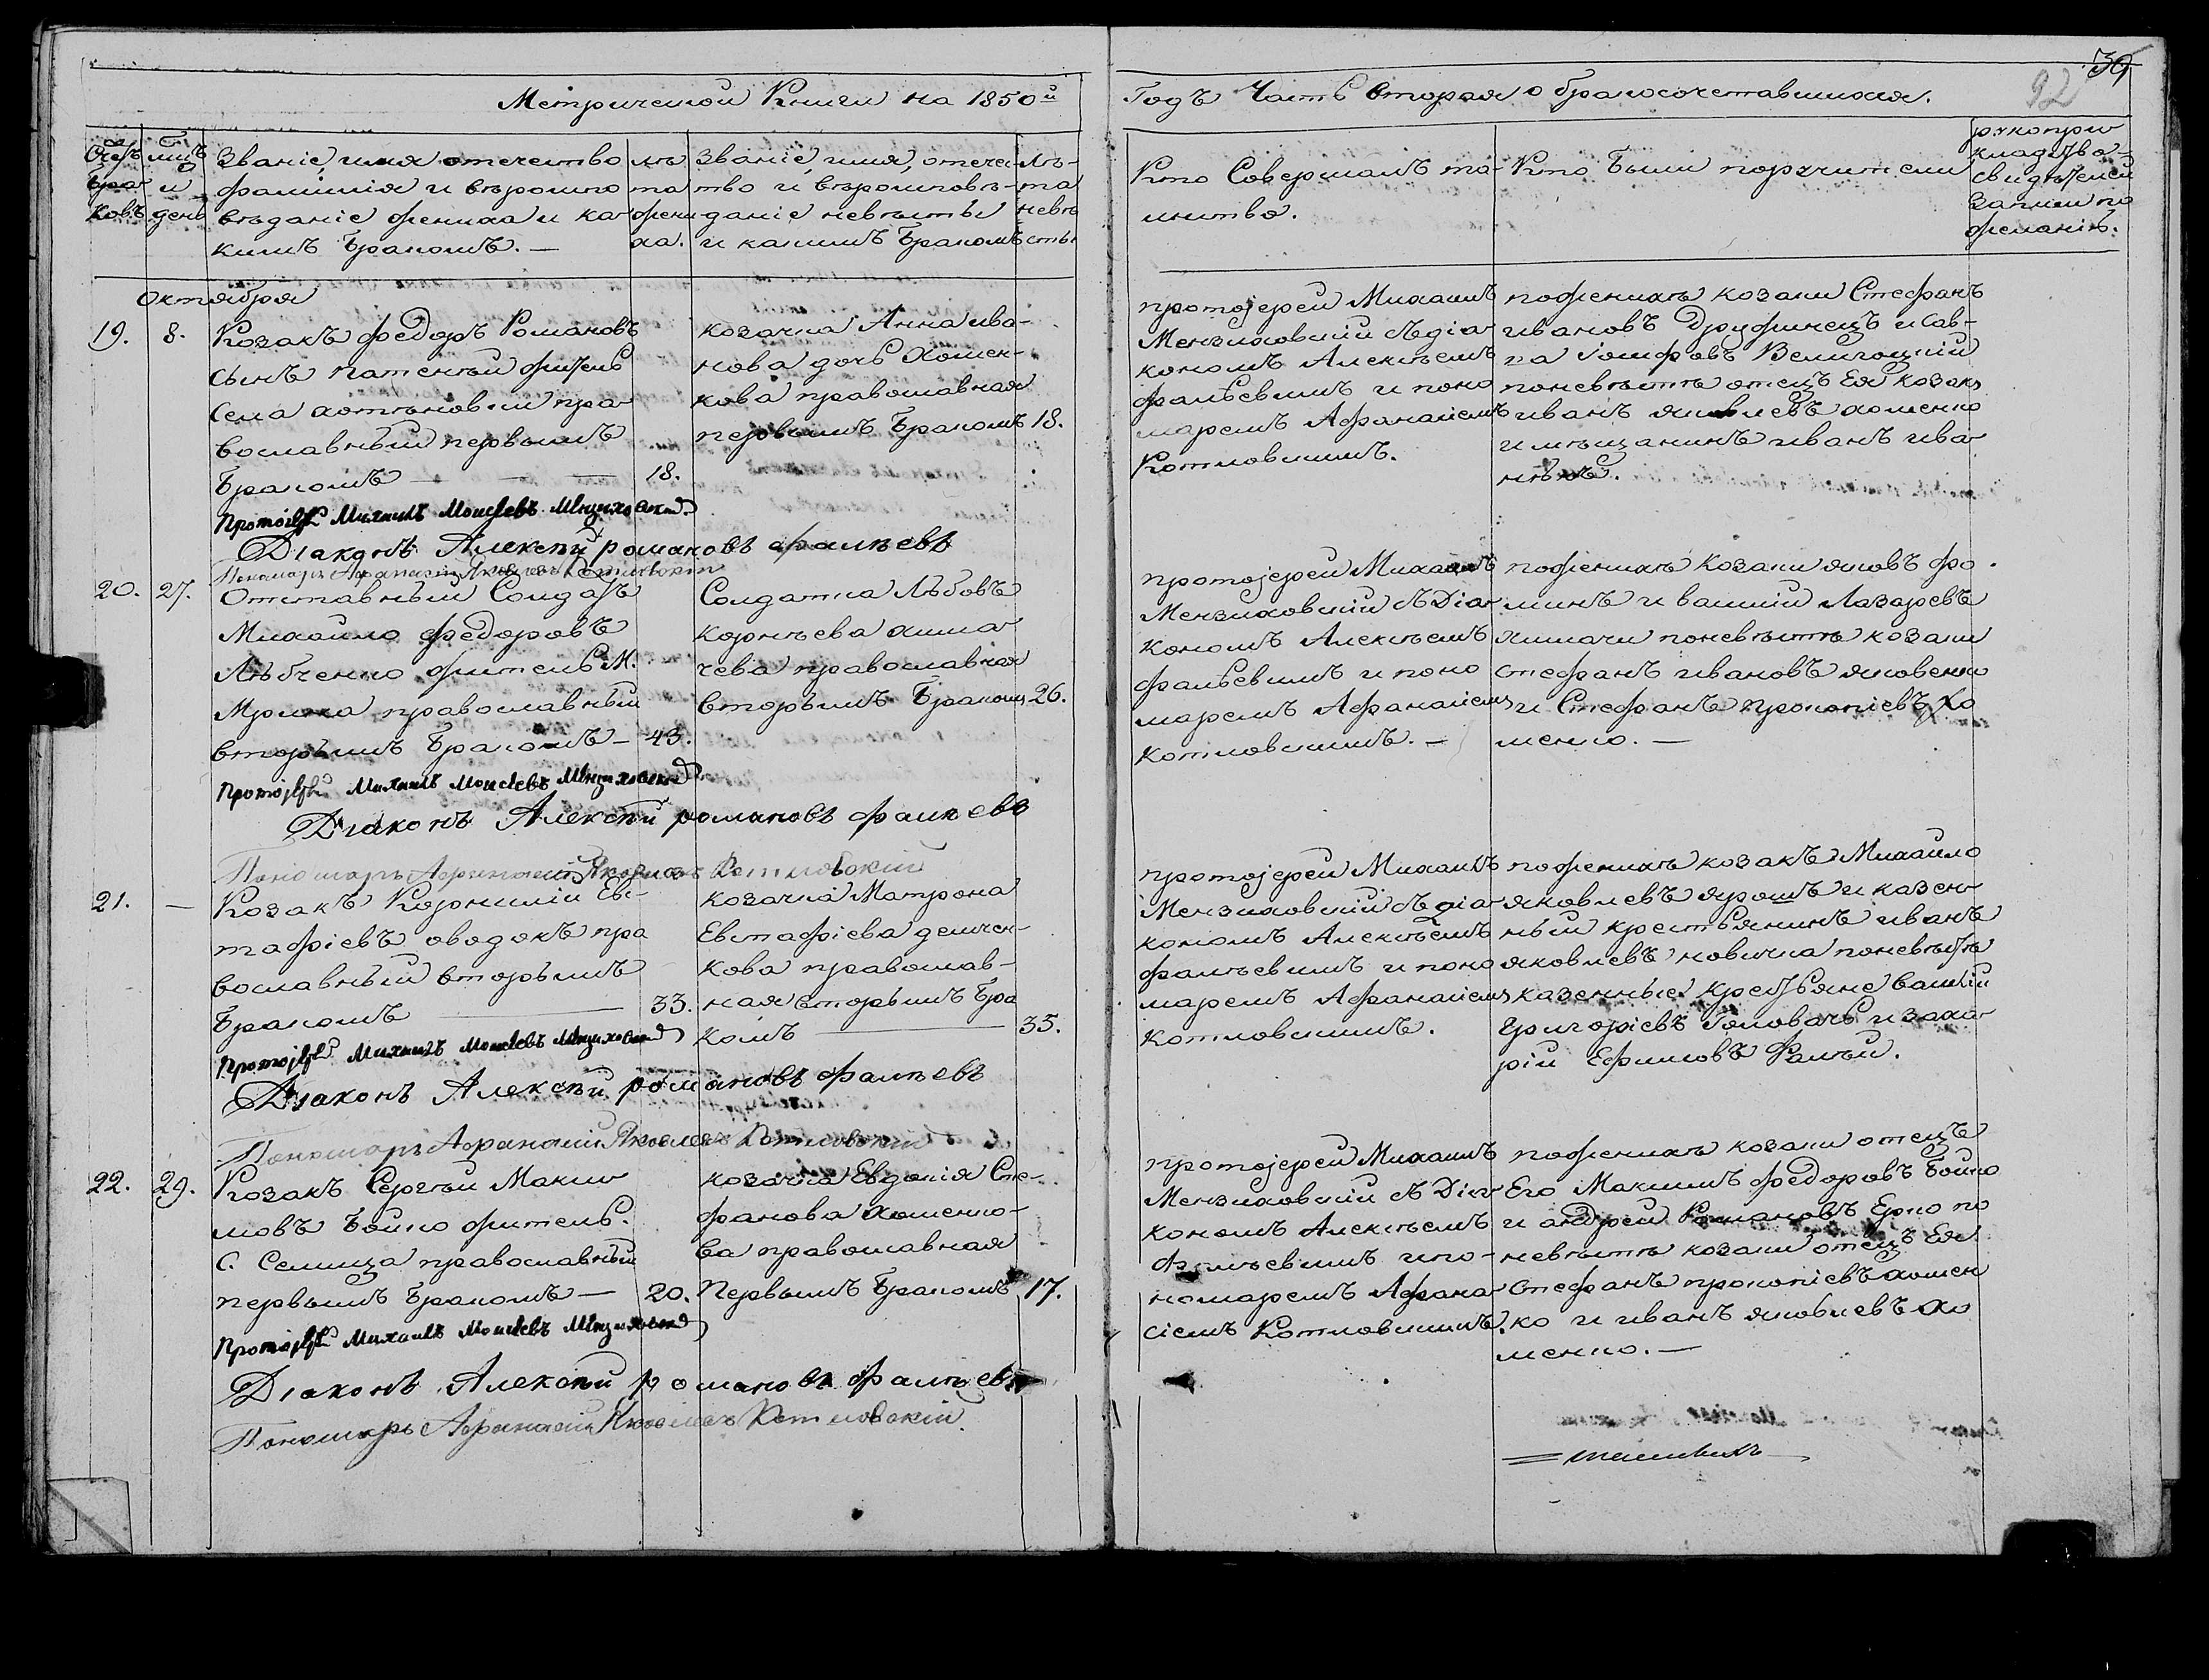 39
92
Метрической Книги на 1850й
Годъ Часть вторая о бракосочетавшихся.
Счетъ браковъ
м-цъ и день
Званіе, имя отечество
фамилія и вѣроиспо
вѣданіе жениха и ка
кимъ бракомъ. —
лѣта жениха.
Званіе, имя, отечес-
тво и вѣроисповѣ-
даніе невѣсты
и какимъ бракомъ
Лѣ-
та
невѣ
сты
Кто Совершалъ та-
инство.
Кто были поручители
рукопри
кладства
свидѣтелей
записи по
желанію.
Октября
19.
8.
Козакъ Федоръ Романовъ
сынъ житель
Села правос-
вославный первымъ
бракомъ —
18.
козачка Анна Ива-
нова дочь Хомен-
кова православная
первымъ бракомъ
18.
протоjерей Михаилъ
Мензиховскій съ діа
кономъ Алексѣемъ
фалѣевымъ и поно
маремъ Афанасіемъ
Котловскимъ.
по женихѣ козаки Стефанъ
Ивановъ и Сав-
ка
по невѣстѣ отецъ Ея козакъ
Иванъ Яковлевъ Хоменко
и мѣщанинъ Иванъ Ива
Протоіерей Михаилъ Моисеевъ Мензиховскій
Діаконъ Алексѣй романовъ фалѣевъ
Пономарь Афанасій Яковлевъ Котловскій
20.
27.
Отставный Солдатъ
Михайло Федоровъ
Любченко житель М.
православный
вторымъ бракомъ —
43.
Солдатка Любовъ
Корнѣева Хима
чева православная
вторымъ бракомъ
26.
протоjерей Михаилъ
Мензиховскій съ Діа
кономъ Алексѣемъ
фалѣевымъ и поно
маремъ Афанасіемъ
Котловскимъ. —
по женихѣ козаки Яковъ Фо
минъ и василій Лазаревъ
Химачи по невѣстѣ козаки
Стефанъ Ивановъ Яковенко
и Стефанъ Прокопіевъ Хо
менко. —
Протоjерей Михаилъ Моисеевъ Мензиховскій
Діаконъ Алексѣй романовъ фалѣевъ
Пономарь Афанасій Яковлевъ Котловскій
21.
—
Козакъ Корнилій Евс-
тафіевъ оводокъ пра
вославный вторымъ
бракомъ —
33.
козачка Матрона
Евстафіева
кова православ-
ная вторымъ бра
комъ —
35.
протоjерей Михаилъ
Мензиховскій съ діа
кономъ Алексѣемъ
фалѣевымъ и поно
маремъ Афанасіемъ
Котловскимъ.
по женихѣ козакъ Михайло
Яковлевъ Ярошъ и казен
ный крестьянинъ Иванъ
Яковлевъ Новичка по невѣстѣ
казенные крестьяне василій
Григоріевъ Головачъ и Заха
рій Ефимовъ Фалѣй.
Протоjерей Михаилъ Моисеевъ Мензиховскій
Діаконъ Алексѣй романовъ фалѣевъ
Пономарь Афанасій Яковлевъ Котловскій
22.
29.
Козакъ Сергѣй Макси
мовъ Бойко житель
С. Селища православный
первымъ бракомъ —
20.
козачка Евдокія Сте-
фанова Хоменко-
ва православная
Первымъ бракомъ
17.
протоjерей Михаилъ
Мензиховскій съ Діа
кономъ Алексѣемъ
Фалѣевымъ и по-
номаремъ Афана
сіемъ Котловскимъ.
по женихѣ козаки отецъ
Его Максимъ Федоровъ Бойко
и андрей Романовъ Ерко по
невѣстѣ козаки отецъ Ея
Стефанъ прокопіевъ Хомен
ко и Иванъ Яковлевъ Хо
менко. —
Протоjерей Михаилъ Моисеевъ Мензиховскій
Діаконъ Алексѣй романовъ Фалѣевъ
Пономарь Афанасій Яковлевъ Котловскій